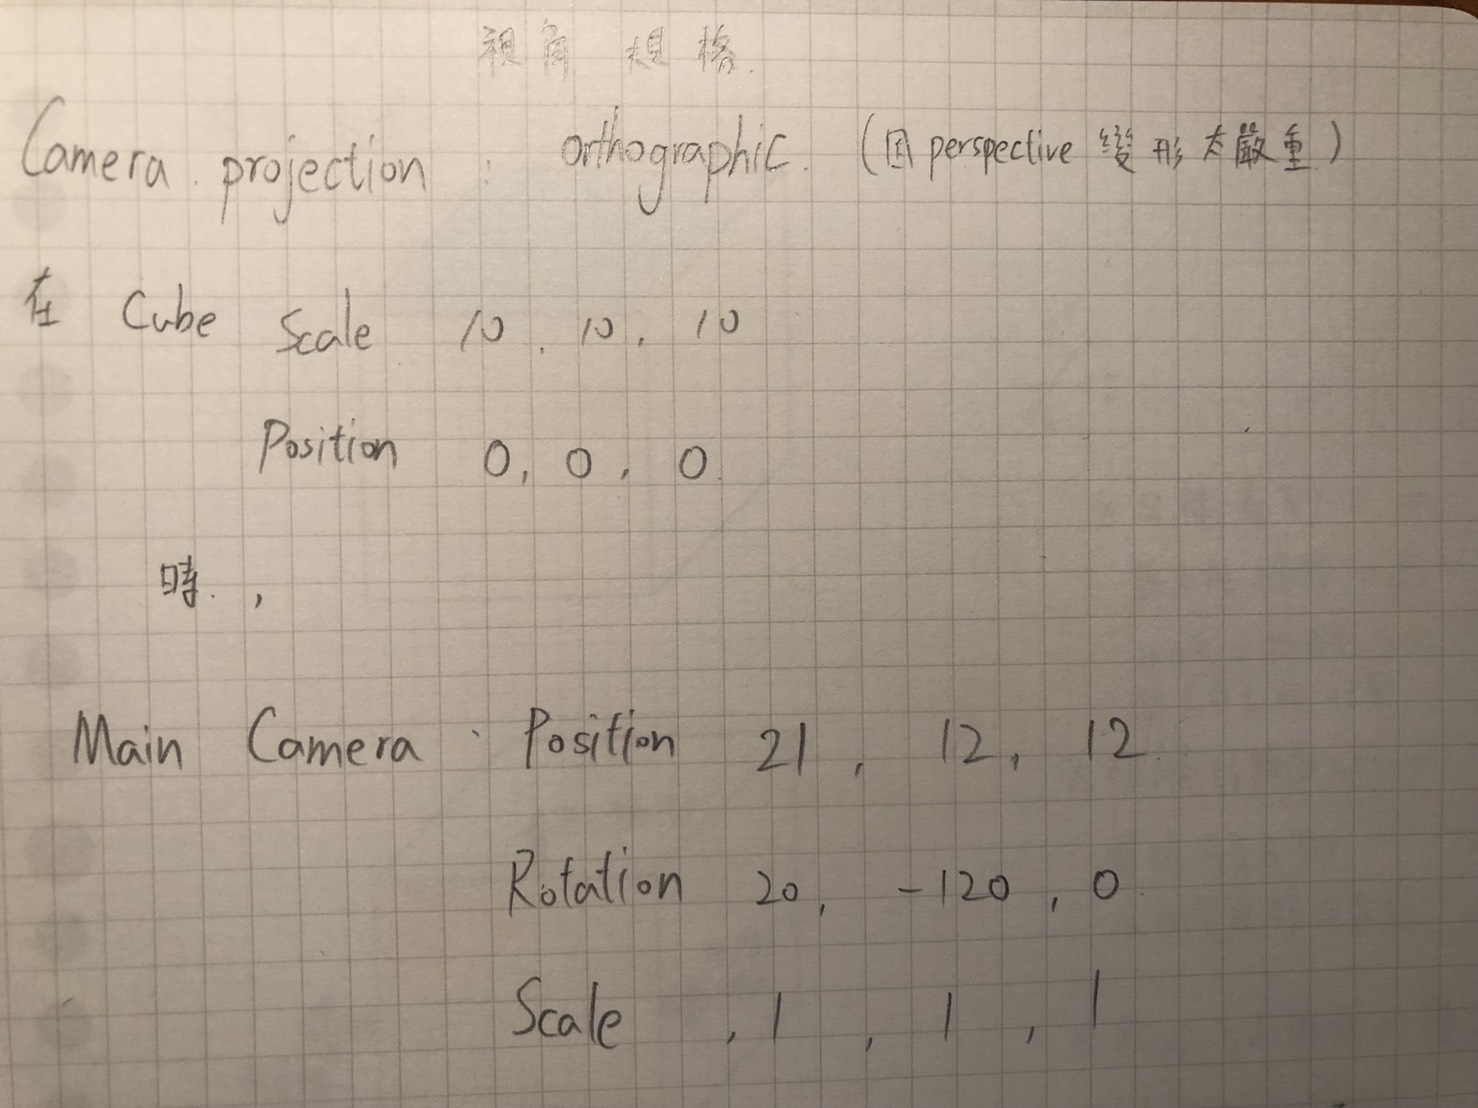 視角規格.
Camera projection : orthographic. (因 perspective 變形太嚴重)
在 Cube Scale 10, 10, 10
Position 0, 0, 0
時,
Main Camera · Position 21, 12, 12
Rotation 20, -120, 0
Scale , 1, 1, 1